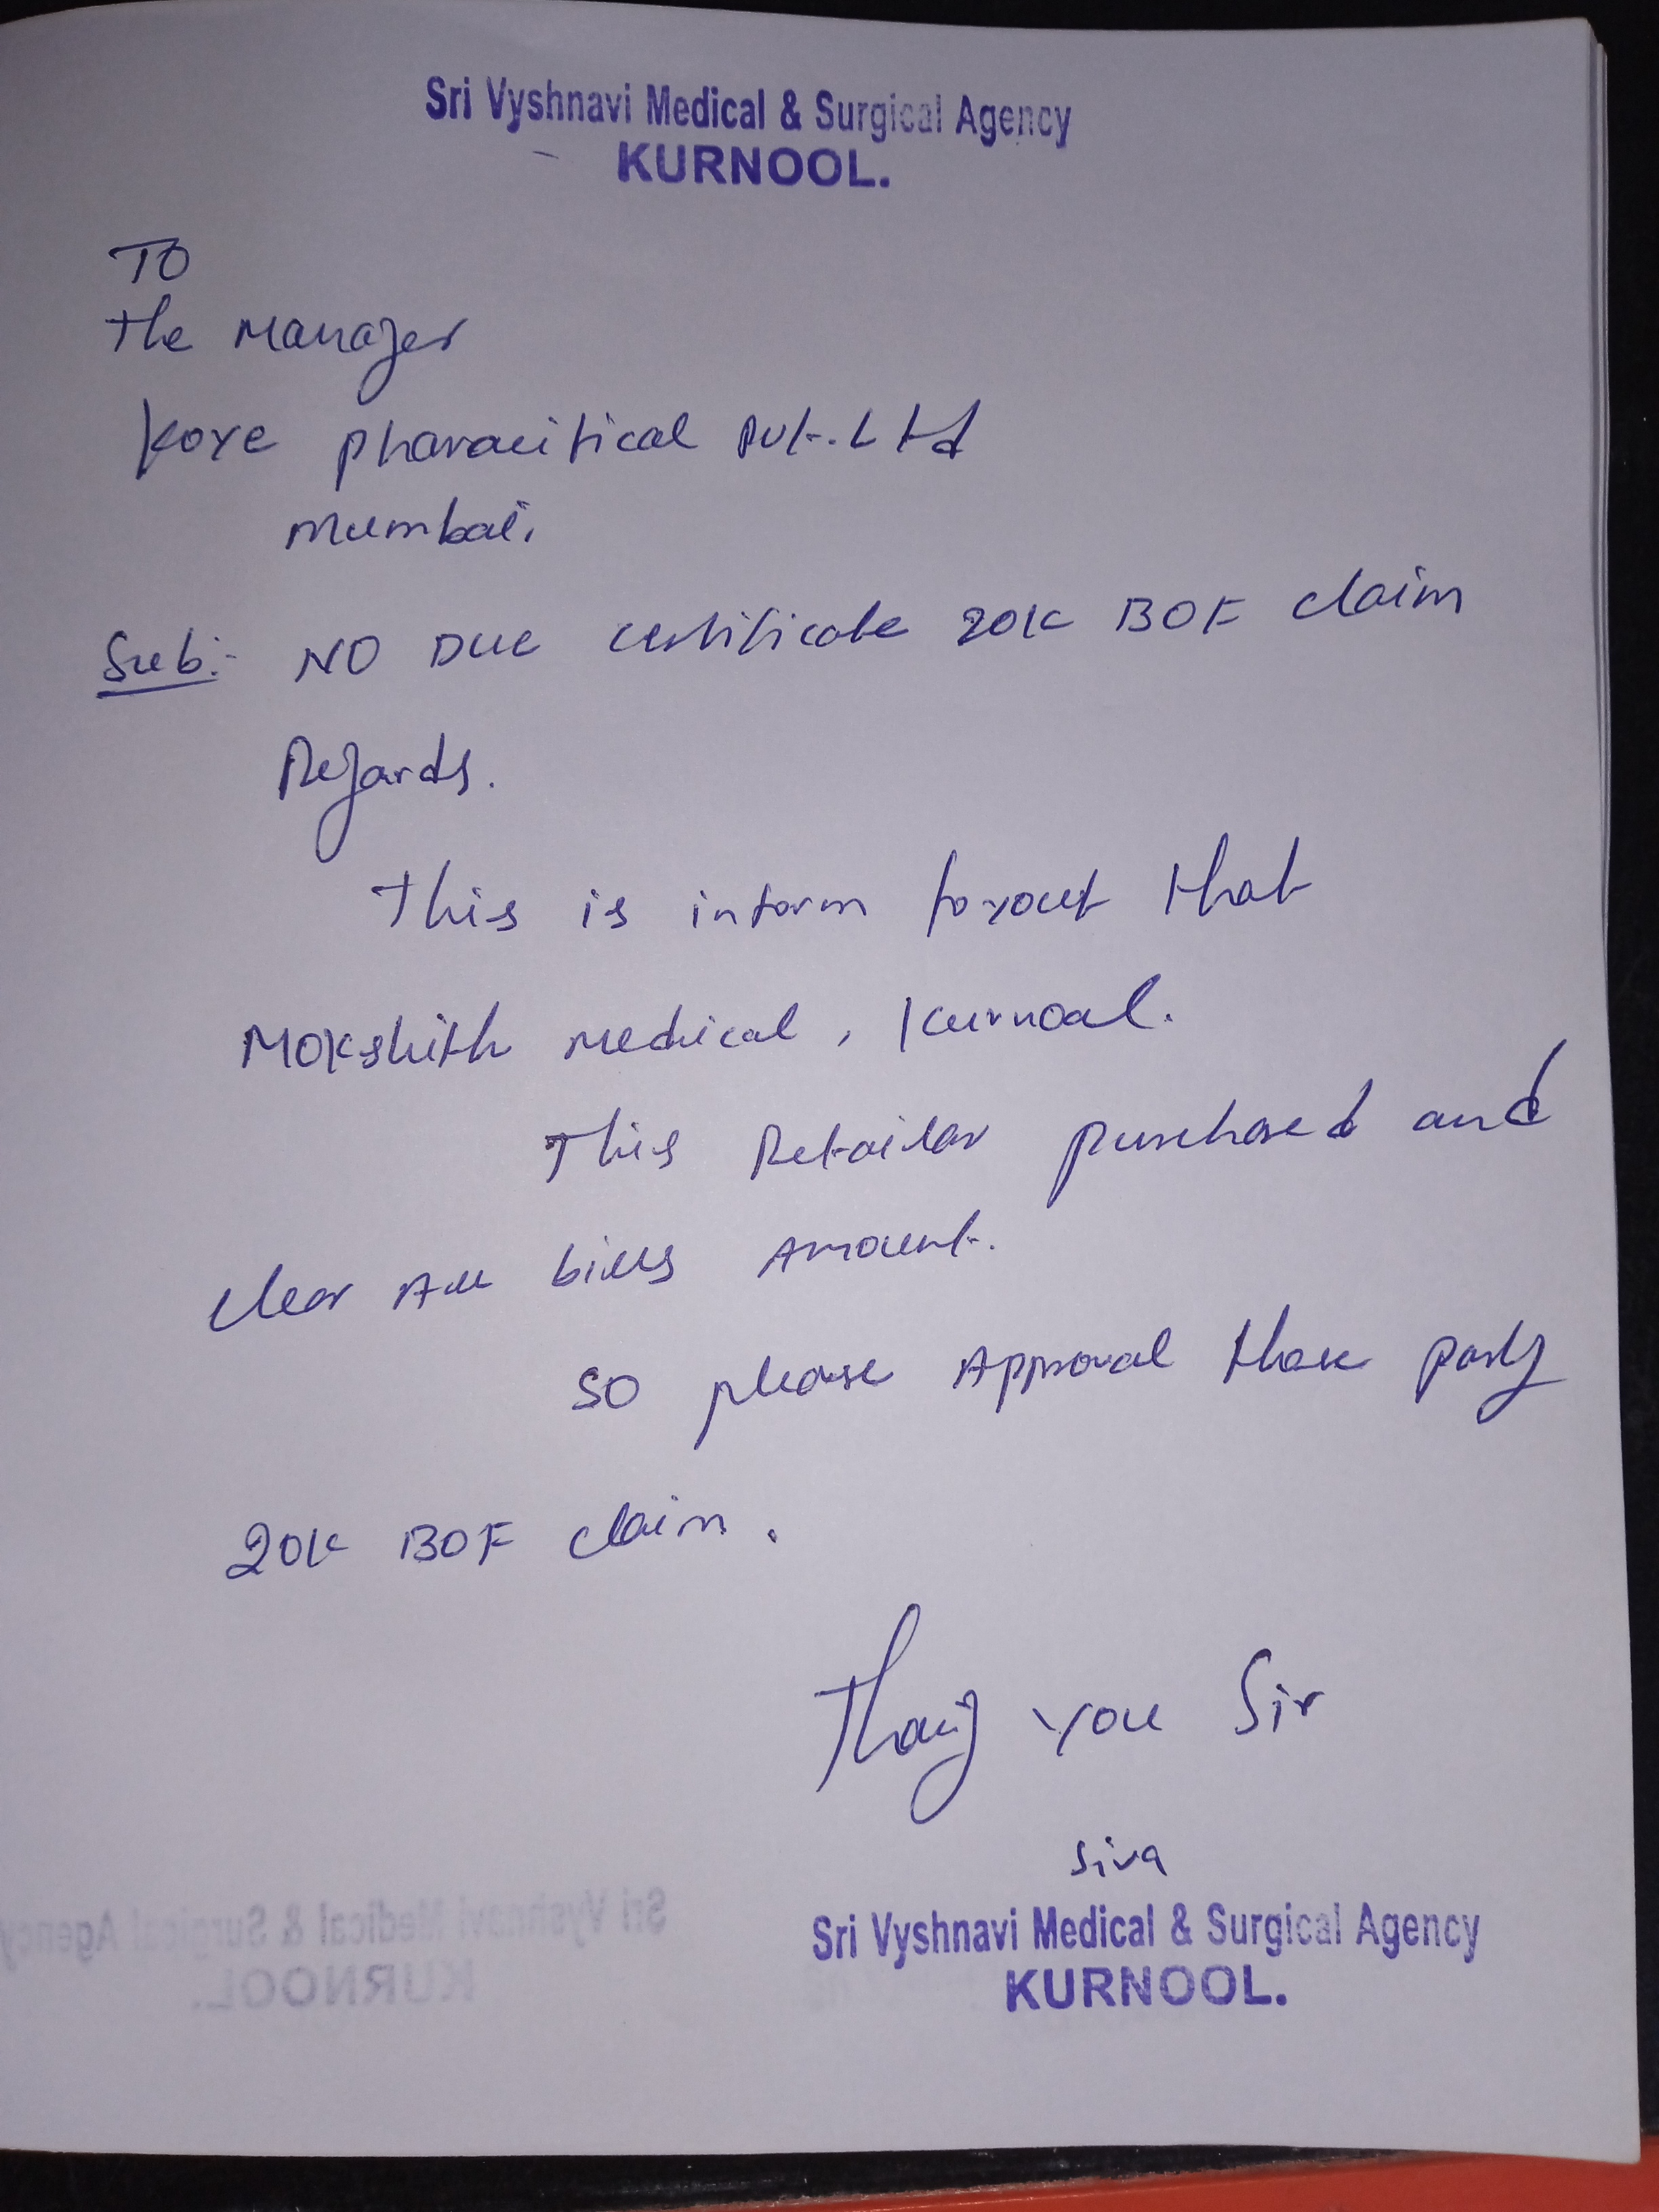 Sri Vyshnavi Medical & Surgical Agency
KURNOOL.
TO
The Manager
Kore pharacitical Pvt. Ltd
Mumbai.
Sub:- NO Due certificate 20K BOF claim
Regards.
This is inform toyout that
Mokshith Medical, Kurnool.
This Retailar purchased and
clear All bills Amount.
SO please Approval these party
20K BOF claim.
Thang you Sir
Siva
Sri Vyshnavi Medical & Surgical Agency
KURNOOL.
Sri Vyshnavi Medical & Surgical Agency
KURNOOL.